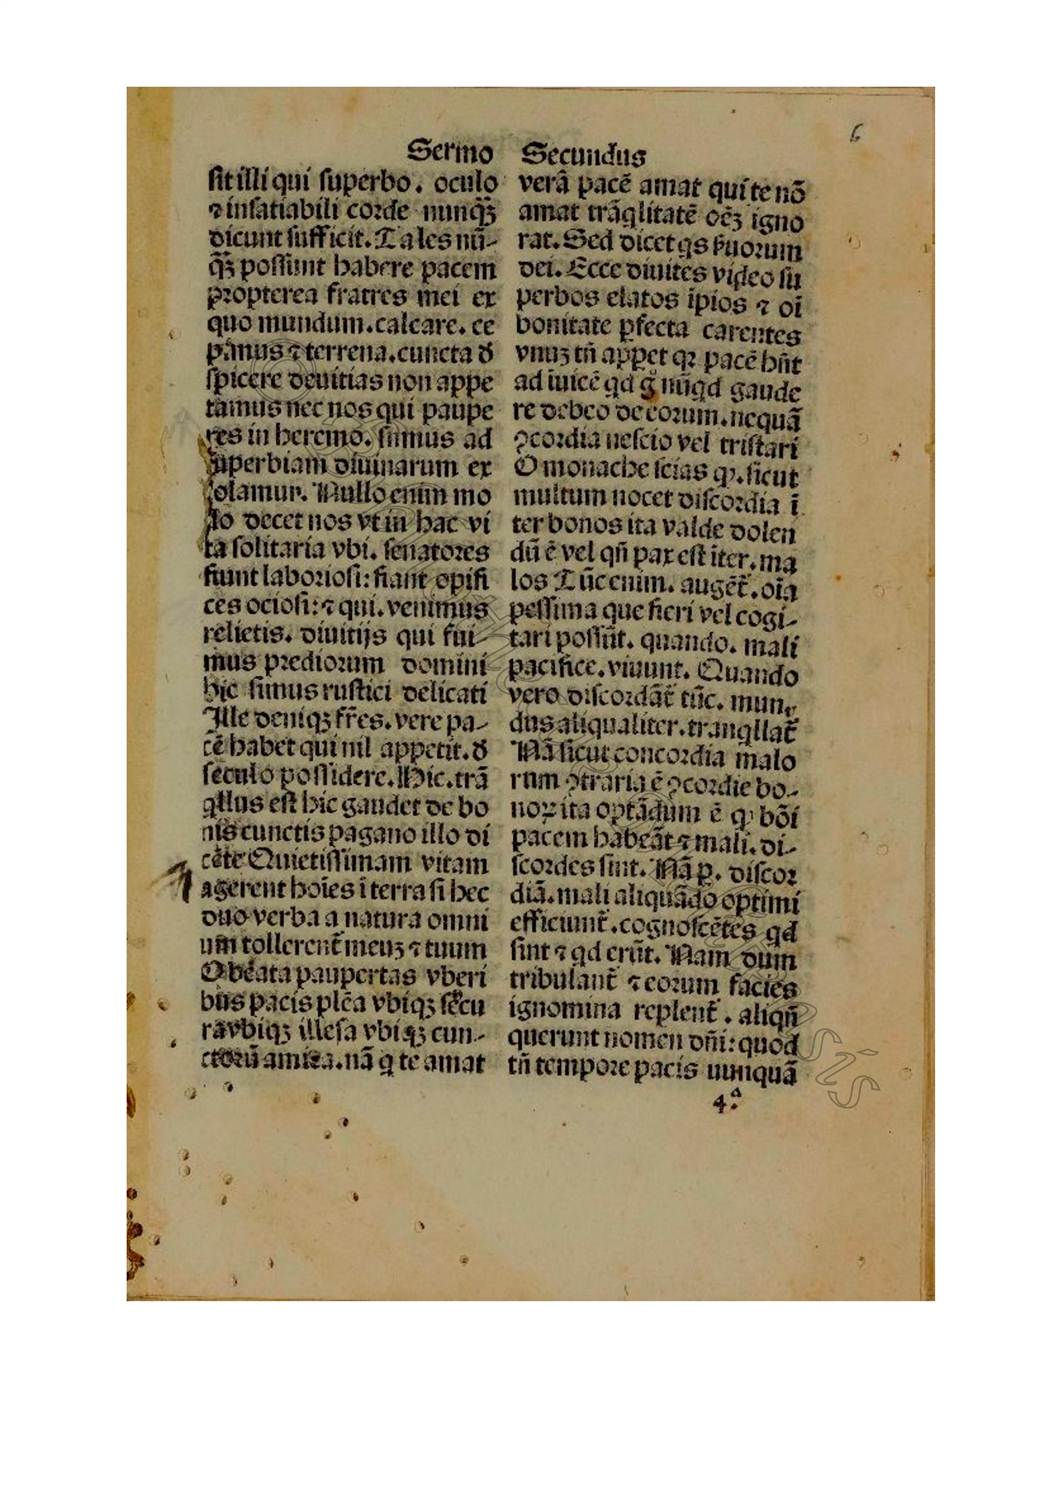 6
Sermo Secundus
sit illi qui superbo. oculo
⁊ insatiabili corde nunq̃ꝫ
dicunt sufficit. Tales nū-
q̃ꝫ possunt habere pacem
propterea fratres mei ex
quo mundum. calcare. ce
pimus ⁊ terrena. cuncta ꝺ̄
spicere deuitias non appe
tamus nec nos qui paupe
res in heremo. sumus ad
superbiam diuinarum ex
tolamur. Nullo enim mo
do decet nos vt in hac vi
ta solitaria vbi. senatores
fiunt laboriosi: fiant opifi
ces ociosi: ⁊ qui. venimus
relictis. diuitijs qui fui-
mus prediorum domini
hic simus rustici delicati
Ille deniqꝫ fr̄es. vere pa-
cē habet qui nil appetit. ꝺ̄
seculo possidere. Hic. trā
qͥllus est hic gaudet de bo
nis cunctis pagano illo di
cēte Quietissimam vitam
agerent hoīes ī terra si hec
duo verba a natura omni
um tollerent̄ meuꝫ ⁊ tuum
O beata paupertas vberi
bus pacis plēa vbiqꝫ secu
ra vbiqꝫ illesa vbiqꝫ cun-
ctorū amica. nā q̄ te amat
verā pacē amat qui te nō
amat trāqͥlitatē oēꝫ igno
rat. Sed dicet qͥs s̄uorum
dei. Ecce diuites video su
perbos elatos īpios ⁊ oī
bonitate ꝑfecta carentes
vnuꝫ tn̄ apꝑet qꝛ pacē hn̄t
ad īuicē qd g̊ nūqͥd gaude
re debeo de eorum. nequā
ꝯcordia nescio vel tristari
O monache scias ꝙ. sicut
multum nocet discordia ī
ter bonos ita valde dolen
dū ē vel qn̄ pax est īter. ma
los Tūc enim. auget̄. oīa
pessima que fieri vel cogi-
tari possūt. quando. mali
pacifice. viuunt. Quando
vero discordāt̄ tūc. mun-
dus aliqualiter. tranqͥllat̄
Nā sicut concordia malo
rum ꝯtraria ē ꝯcordie bo-
noꝝ ita optādum ē ꝙ bōi
pacem habeāt ⁊ mali. di-
scordes sint. Nā ꝑ. discor
diā. mali aliquādo optimi
efficiunt̄. cognoscētes qd
sint ⁊ qd erūt. Nam dum
tribulant̄ ⁊ eorum facies
ignomina replent̄. aliqn̄
querunt nomen dn̄i: quod
tn̄ tempore pacis nunquā
4.ª